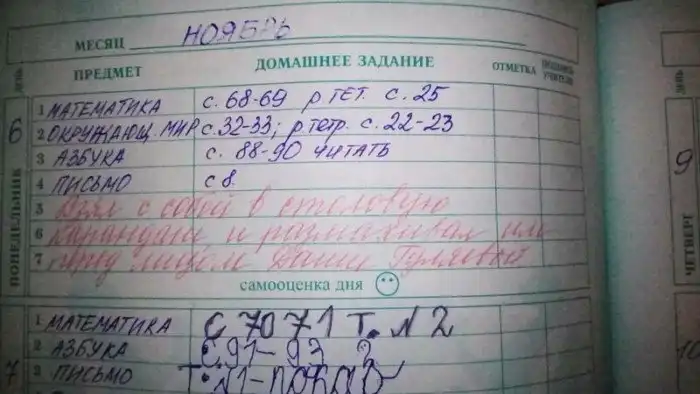 МЕСЯЦ НОЯБРЬ
ДЕНЬ ПРЕДМЕТ ДОМАШНЕЕ ЗАДАНИЕ ОТМЕТКА ПОДПИСЬ УЧИТЕЛЯ
6 ПОНЕДЕЛЬНИК
1 МАТЕМАТИКА с. 68-69 р.тет. с. 25
2 ОКРУЖАЮЩ. МИР с. 32-33; р.тетр. с. 22-23
3 АЗБУКА с. 88-90 ЧИТАТЬ
4 ПИСЬМО с 8.
5 Взял с собой в столовую
6 карандаш и размахивал им
7 перед лицом Даши Гуляевой
самооценка дня
7
1 МАТЕМАТИКА С 70 71 Т. N 2
2 АЗБУКА С 91-93
3 ПИСЬМО
ДЕНЬ
9
ЧЕТВЕРГ
10